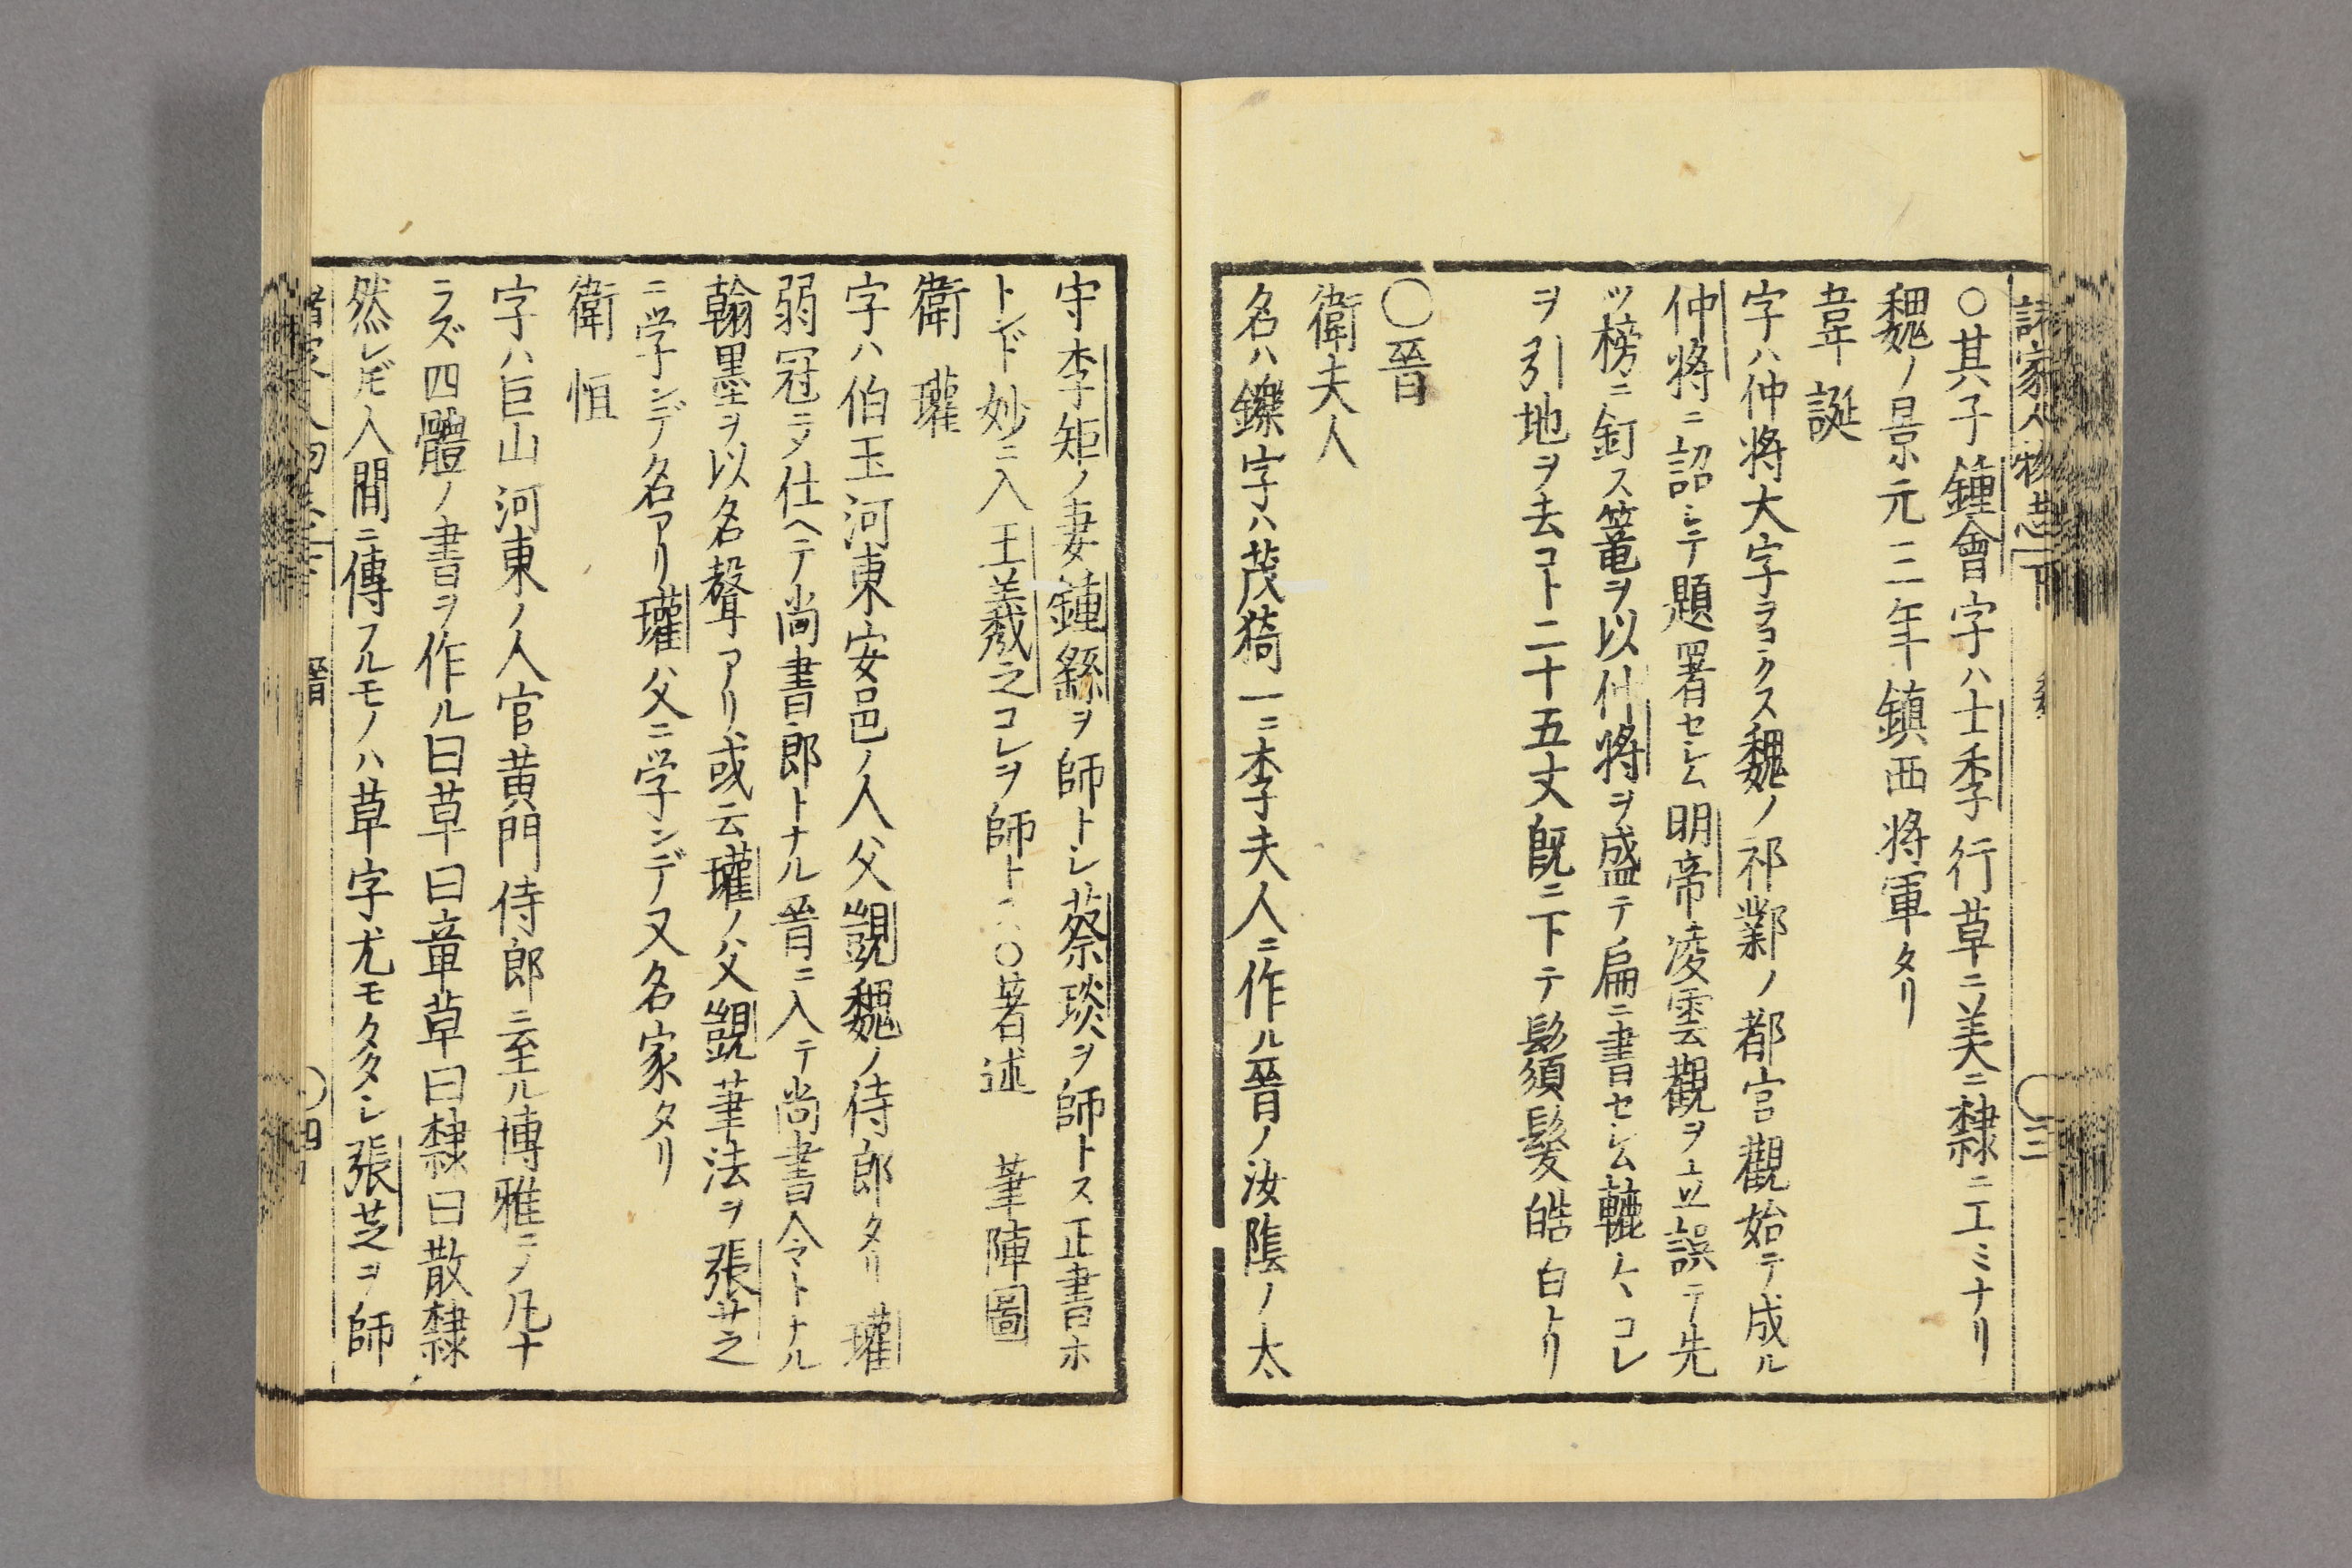 諸家人物志 下
三
○其子鍾會字ハ士季行草ニ美ニ隷ニ工ミナリ
魏ノ景元三年鎮西将軍タリ
韋誕
字ハ仲将大字ヲヨクス魏ノ祁鄴ノ都宮觀始テ成ル
仲将ニ詔シテ題署セシム明帝凌雲觀ヲ立誤テ先
ツ榜ニ釘ス篭ヲ以仲将ヲ盛テ扁ニ書セシム轆ヽコレ
ヲ引地ヲ去コト二十五丈既ニ下テ鬚髮皓白トリ
○晉
衛夫人
名ハ鑠字ハ茂猗一ニ李夫人ニ作ル晉ノ汝隂ノ太
守李矩ノ妻鍾繇ヲ師トシ蔡琰ヲ師トス正書ホ
トンド妙ニ入王羲之コレヲ師トス○著述 筆陣圖
衛瓘
字ハ伯玉河東安邑ノ人父覬魏ノ侍郎タリ瓘
弱冠ニノ仕ヘテ尚書郎トナル晉ニ入テ尚書令トナル
翰墨ヲ以名聲アリ或云瓘ノ父覬筆法ヲ張芝
ニ学ンデ名アリ瓘父ニ学ンデ又名家タリ
衛恒
字ハ巨山河東ノ人官黄門侍郎ニ至ル博雅ニノ凡ナ
ラズ四體ノ書ヲ作ル曰草曰章草曰隷曰散隷
然レドモ人間ニ傳フルモノハ草字尤モタ多シ張芝ヲ師
晉
四